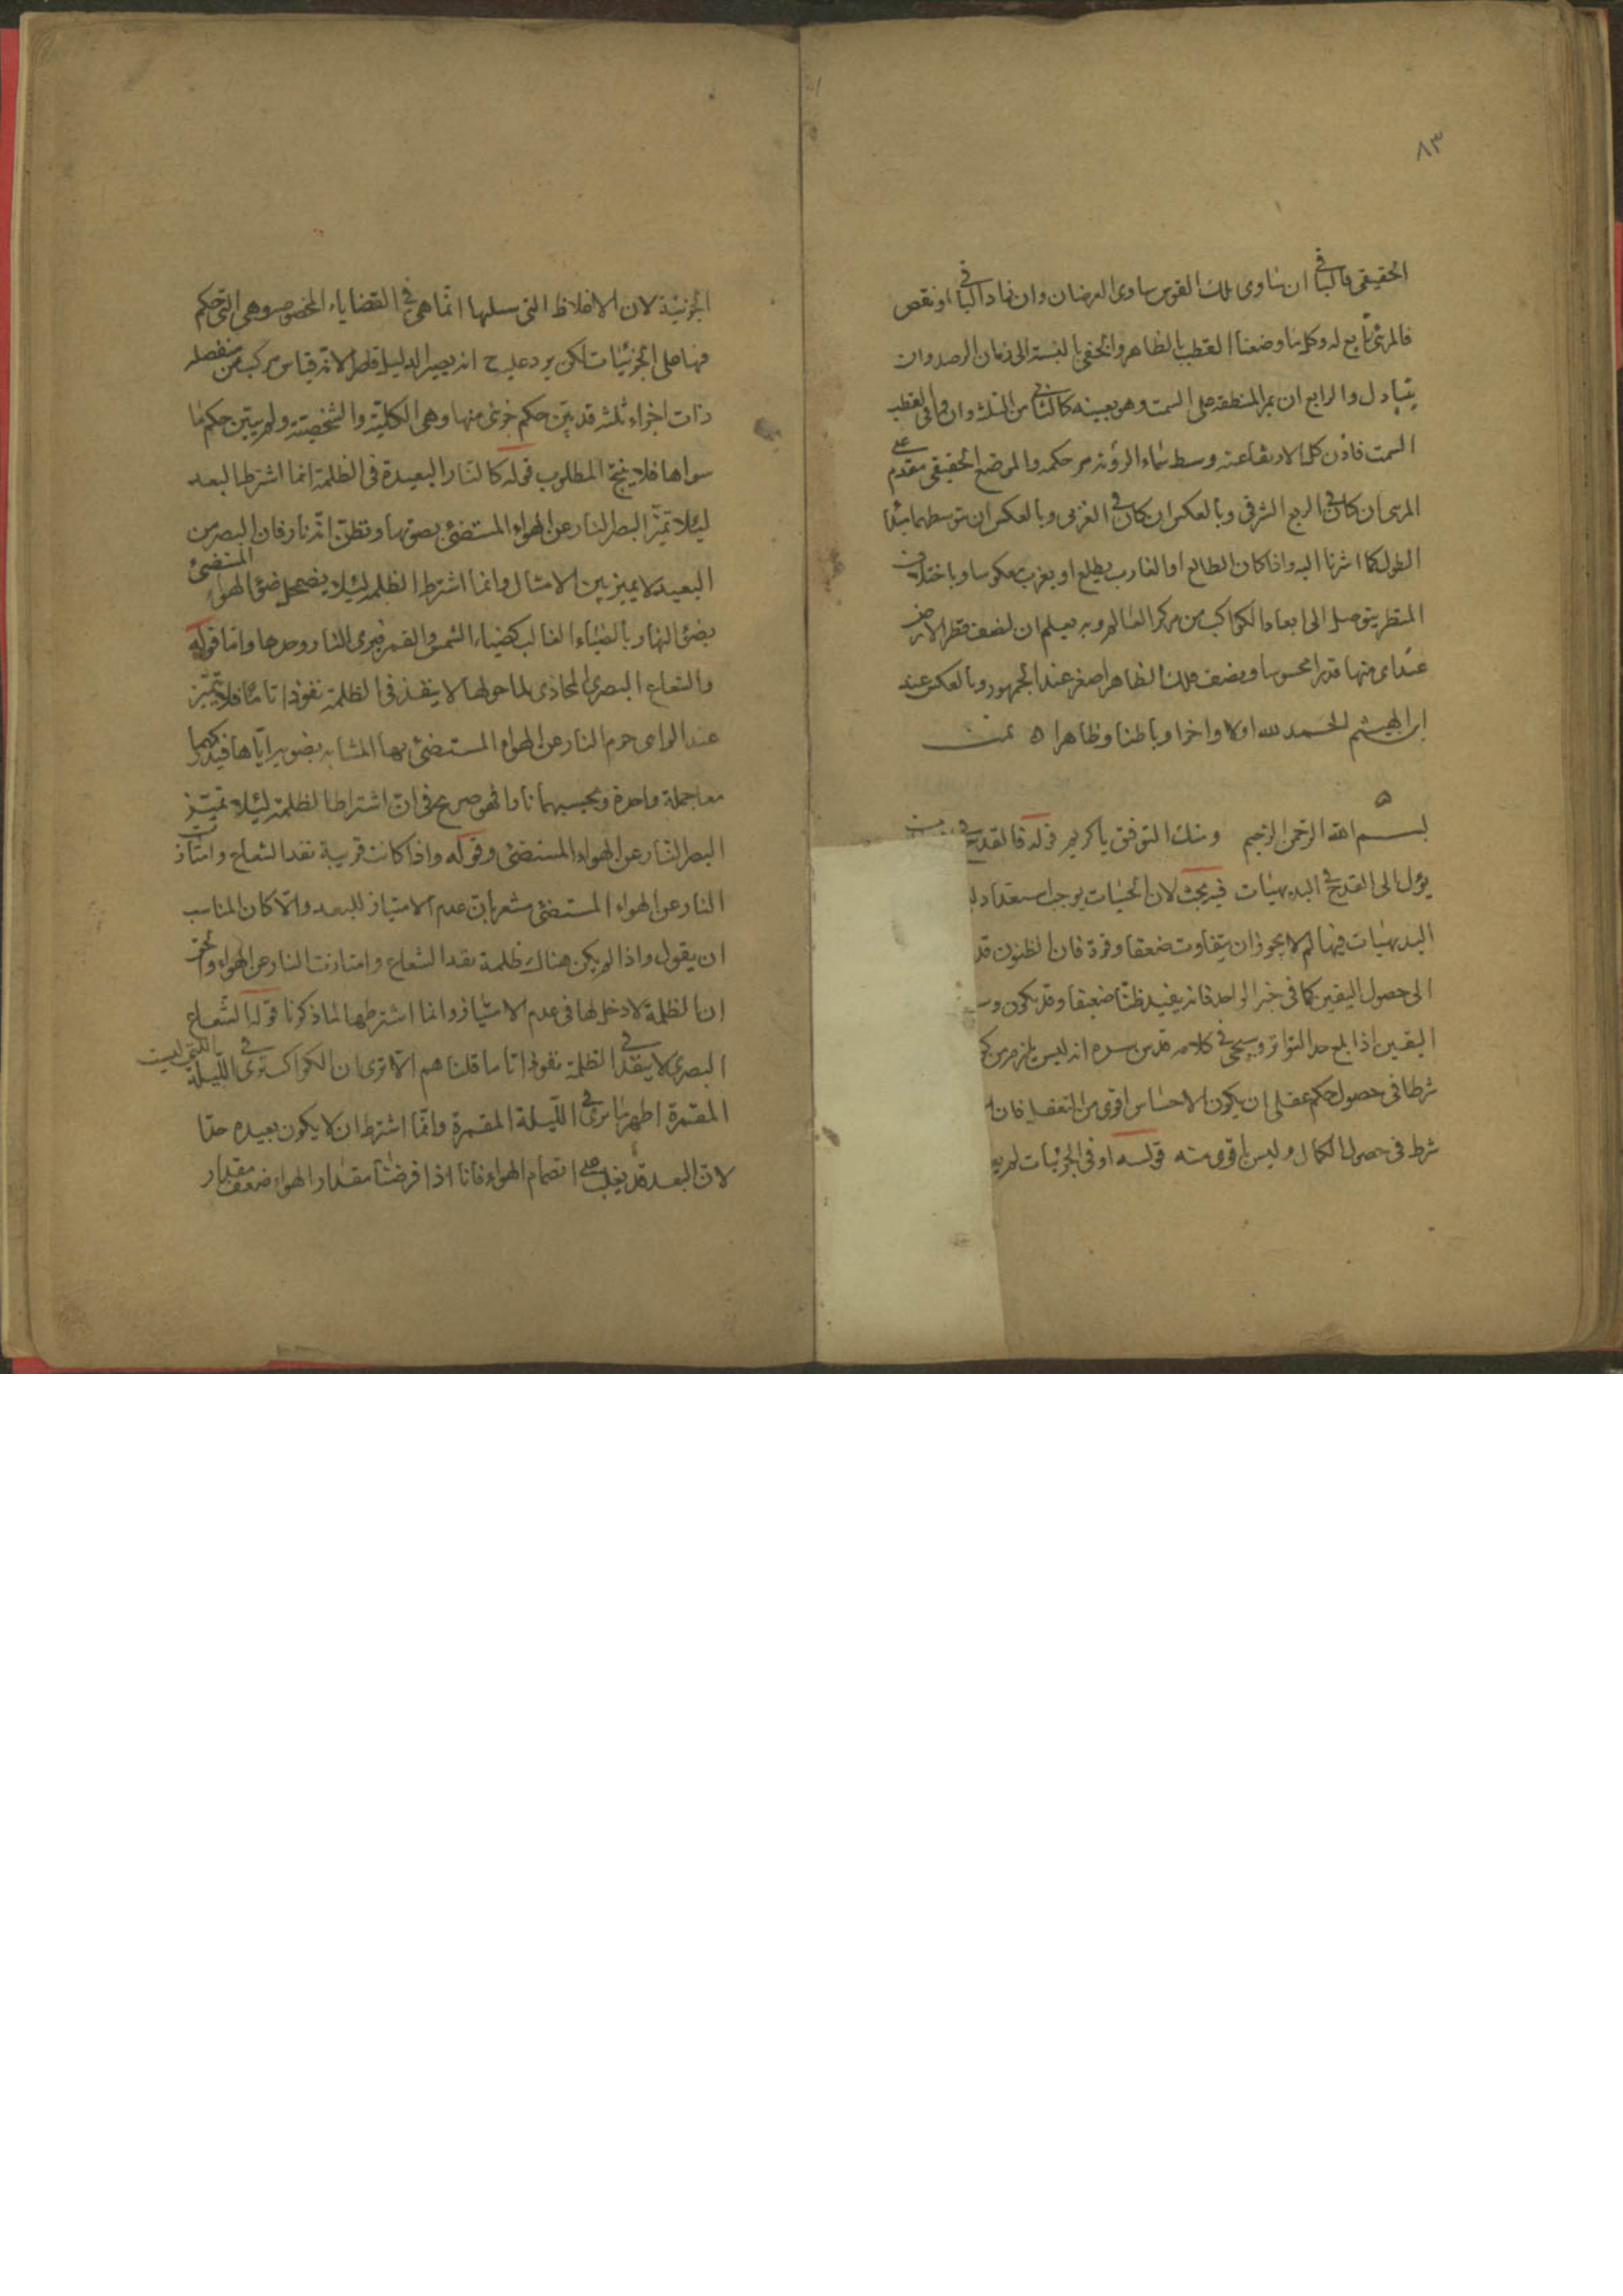 ٨٣
الحقيقى فالباقى ان ساوى تلك القوس ساوى العرضان وان زاد الباقى او نقص
فالمرئى تابع له وكل ما وضعنا القطب الظاهر والخفى بالنسبة الى زمان الرصد وان
يتبادل والرابع ان يمر المنطقة على السمت وهو بعينه كالثانى من الثلث وان وافى القطب
السمت فاذن كل الارتفاعية وسط سماء الرؤية مر حكمه والموضع الحقيقى مقدم على
المرئى ان كان فى الربع الشرقى وبالعكس ان كان فى الغربى وبالعكس ان توسطهما مبدأ
الطول كما اشرنا اليه واذا كان الطالع او الغارب يطلع او يغرب معكوسا وباختلاف
المنظر يتوصل الى ابعاد الكواكب من مركز العالم وبه يعلم ان لنصف قطر الارض
عند اى منها قدرا محسوسا ونصف فلك الظاهر اصغر عند الجمهور وبالعكس عند
ابن الهيثم الحمد لله اولا واخرا وباطنا وظاهرا ه تمت
بسم الله الرحمن الرحيم ومنك التوفيق يا كريم قوله فالقدح
يؤل الى القدح فى البديهيات فيه بحث لان الحسيات يوجب استعداد
البديهيات فيها لم لا يجوز ان يتفاوت ضعفا وقوة فان الظنون قد
الى حصول اليقين كما فى خبر الواحد فانه يفيد ظنا ضعيفا وقد يكون
اليقين اذا بلغ حد التواتر وسيجئ فى كلامه قدس سره انه ليس يلزم من
شرطا فى حصول حكم عقلى ان يكون الاحساس اقوى من التعقل فان
شرط فى حصول الكمال وليس باقوى منه قوله او فى الجزئيات لم
الجزئية لان الاغلاط التى سلمها انما هى فى القضاياء المخصوصه وهى التى حكم
فيها على الجزئيات لكن يرد عليه ح انه يصير الدليل قاصرا لانه قياس مركب من منفصله
ذات اجزاء ثلثه قد بين حكم جزئى منها وهى الكلية والشخصية ولم يبين حكم ما
سواها فلا ينتج المطلوب قوله كالنار البعيدة فى الظلمة انما اشترط البعد
ليئلا تميز البصر النار عن الهواء المستضئ بضوئها ونظن انه نار فان البصر من
البعيد لا يميز بين الامثال وانما اشترط الظلمه ليئلا يضمحل ضؤ الهواء المستضئ
بضؤ النهار بالضياء الغالب كضياء الشمس والقمر فيرى النار وحدها واما قوله
والشعاع البصرى المحاذى لما حولها لا ينفذ فى الظلمة نفوذا تاما فلا يتميز
عند الرائى جرم النار عن الهواء المستضئ بها المشابه بضوئه اياها فيدركهما
معا جملة واحدة ويحسبهما نارا فهو صريح فى ان اشتراط الظلمة ليئلا تميز
البصر النار عن الهواء المستضئ وقوله واذا كانت قريبة نفذ الشعاع وامتاز
النار عن الهواء المستضئ مشعر بان عدم الامتياز للبعد والا كان المناسب
ان يقول واذا لم يكن هناك ظلمة نفذ الشعاع وامتازت النار عن الهواء والحق
ان الظلمة لا دخل لها فى عدم الامتياز وانما اشترطها لما ذكرنا قوله الشعاع
البصرى لا ينفذ فى الظلمة نفوذا تاما قلنا هم الا ترى ان الكواكب ترى فى الليلة التى ليست
المقمرة اظهر ما ترى فى الليلة المقمرة وانما اشترط ان لا يكون بعيده جدا
لان البعد قد يغلب على انضمام الهواء فانا اذا فرضنا مقدار الهواء ضعف مقدار